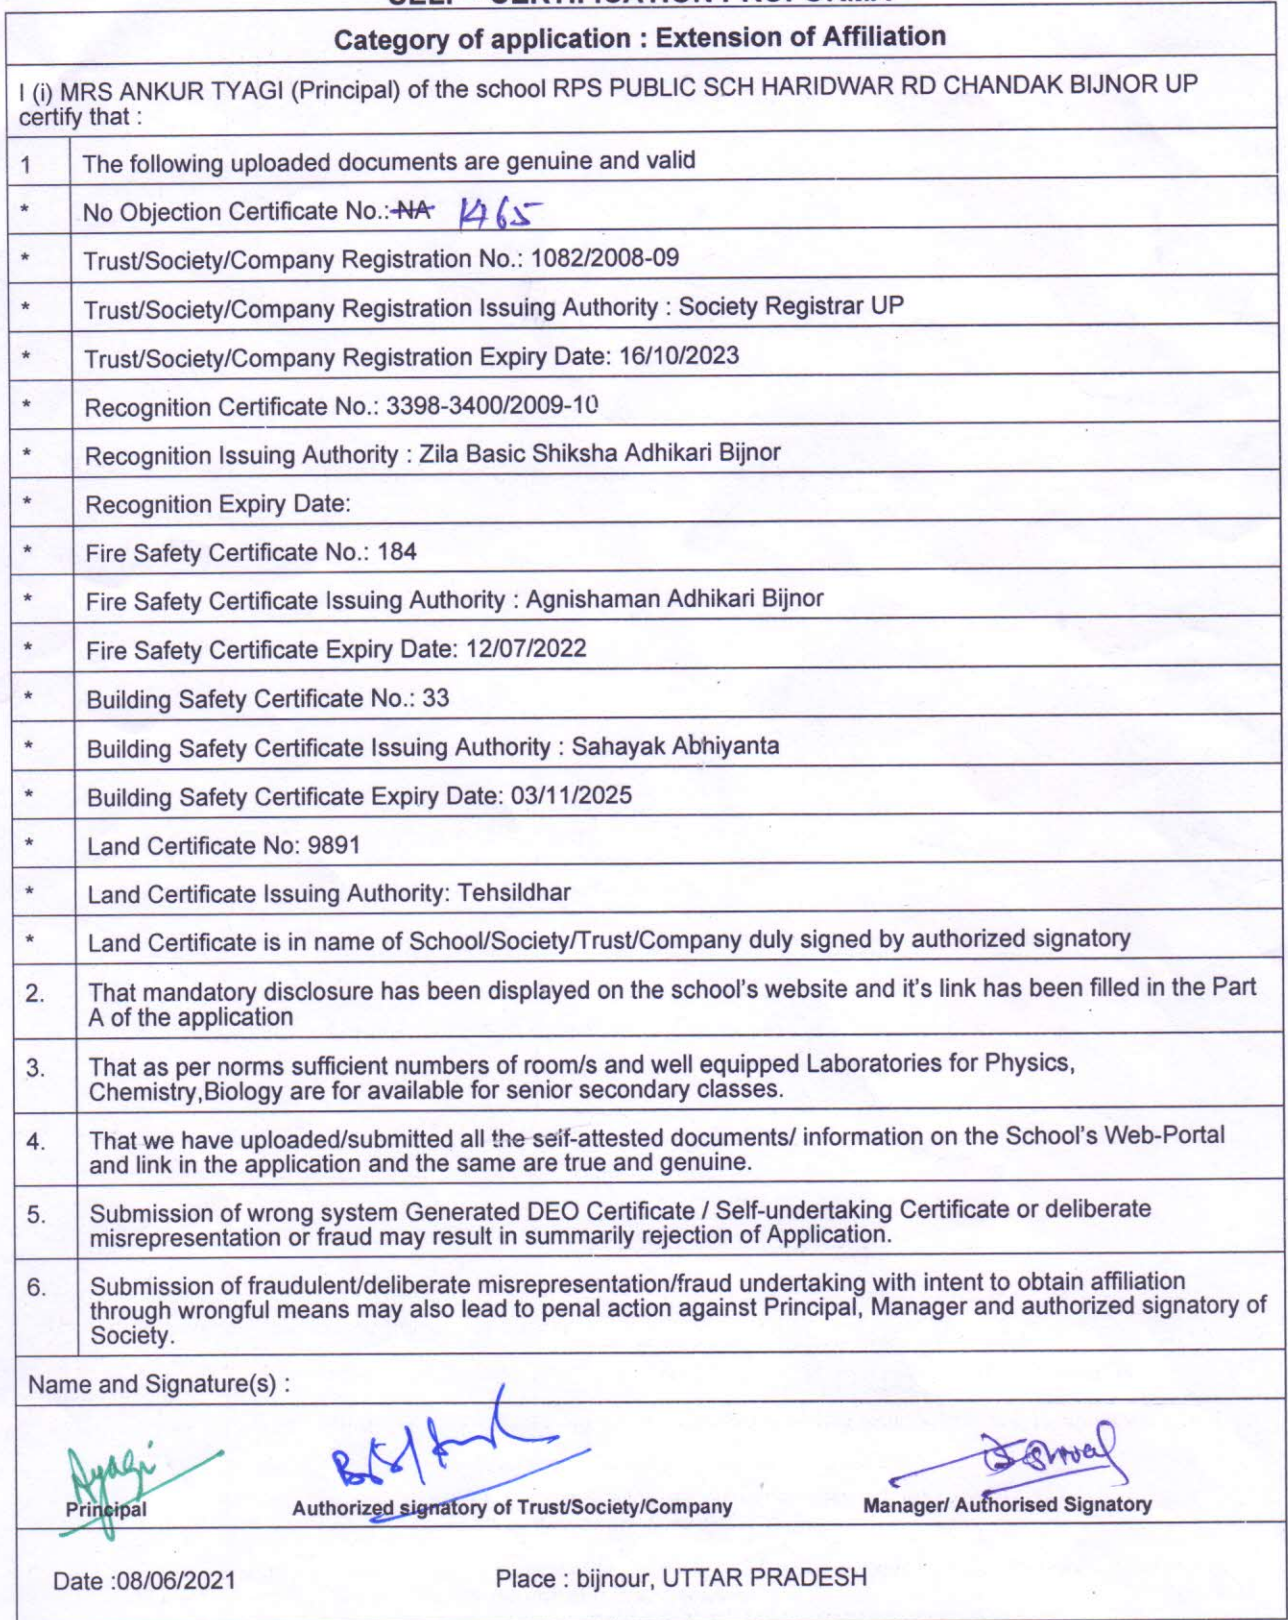 Category of application : Extension of Affiliation
I (i) MRS ANKUR TYAGI (Principal) of the school RPS PUBLIC SCH HARIDWAR RD CHANDAK BIJNOR UP
certify that :
1 The following uploaded documents are genuine and valid
* No Objection Certificate No.: NA 1465
* Trust/Society/Company Registration No.: 1082/2008-09
* Trust/Society/Company Registration Issuing Authority : Society Registrar UP
* Trust/Society/Company Registration Expiry Date: 16/10/2023
* Recognition Certificate No.: 3398-3400/2009-10
* Recognition Issuing Authority : Zila Basic Shiksha Adhikari Bijnor
* Recognition Expiry Date:
* Fire Safety Certificate No.: 184
* Fire Safety Certificate Issuing Authority : Agnishaman Adhikari Bijnor
* Fire Safety Certificate Expiry Date: 12/07/2022
* Building Safety Certificate No.: 33
* Building Safety Certificate Issuing Authority : Sahayak Abhiyanta
* Building Safety Certificate Expiry Date: 03/11/2025
* Land Certificate No: 9891
* Land Certificate Issuing Authority: Tehsildhar
* Land Certificate is in name of School/Society/Trust/Company duly signed by authorized signatory
2. That mandatory disclosure has been displayed on the school's website and it's link has been filled in the Part
A of the application
3. That as per norms sufficient numbers of room/s and well equipped Laboratories for Physics,
Chemistry,Biology are for available for senior secondary classes.
4. That we have uploaded/submitted all the self-attested documents/ information on the School's Web-Portal
and link in the application and the same are true and genuine.
5. Submission of wrong system Generated DEO Certificate / Self-undertaking Certificate or deliberate
misrepresentation or fraud may result in summarily rejection of Application.
6. Submission of fraudulent/deliberate misrepresentation/fraud undertaking with intent to obtain affiliation
through wrongful means may also lead to penal action against Principal, Manager and authorized signatory of
Society.
Name and Signature(s) :
Principal Authorized signatory of Trust/Society/Company Manager/ Authorised Signatory
Date :08/06/2021 Place : bijnour, UTTAR PRADESH